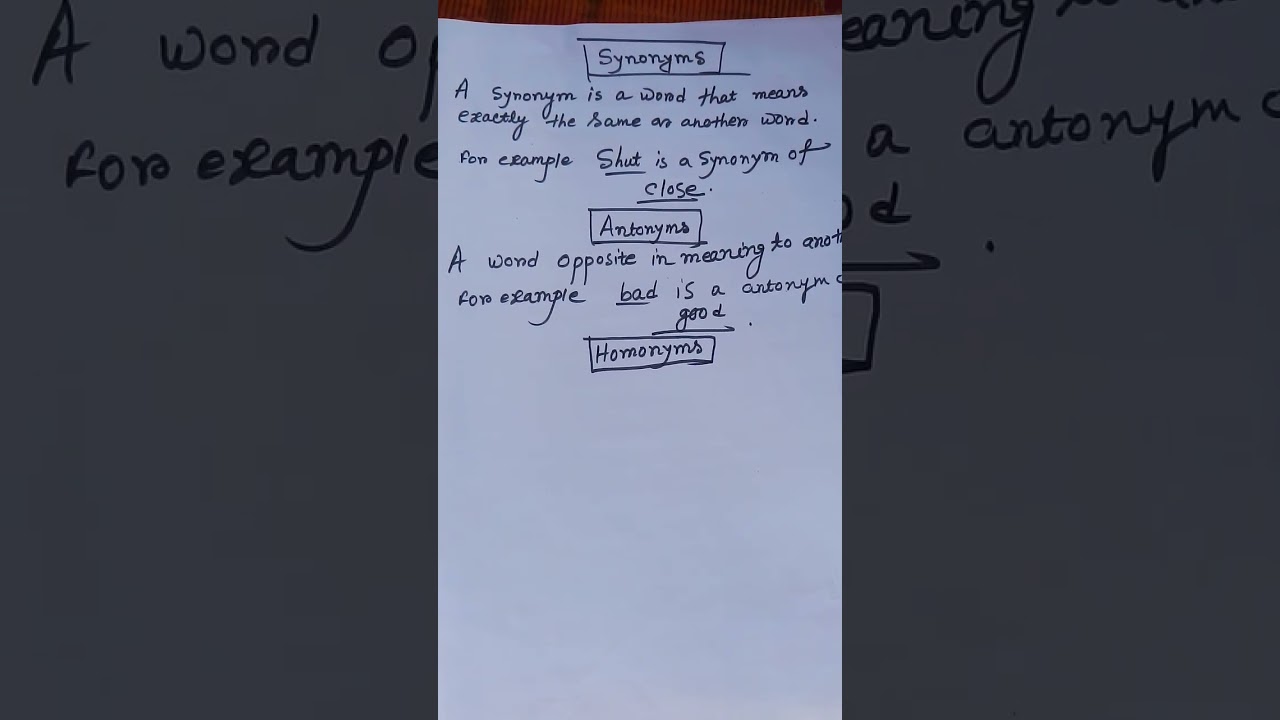 Synonyms
A Synonym is a word that means
exactly the same as another word.
For example Shut is a Synonym of
close.
Antonyms
A word opposite in meaning to
for example bad is a antonym
good.
Homonyms